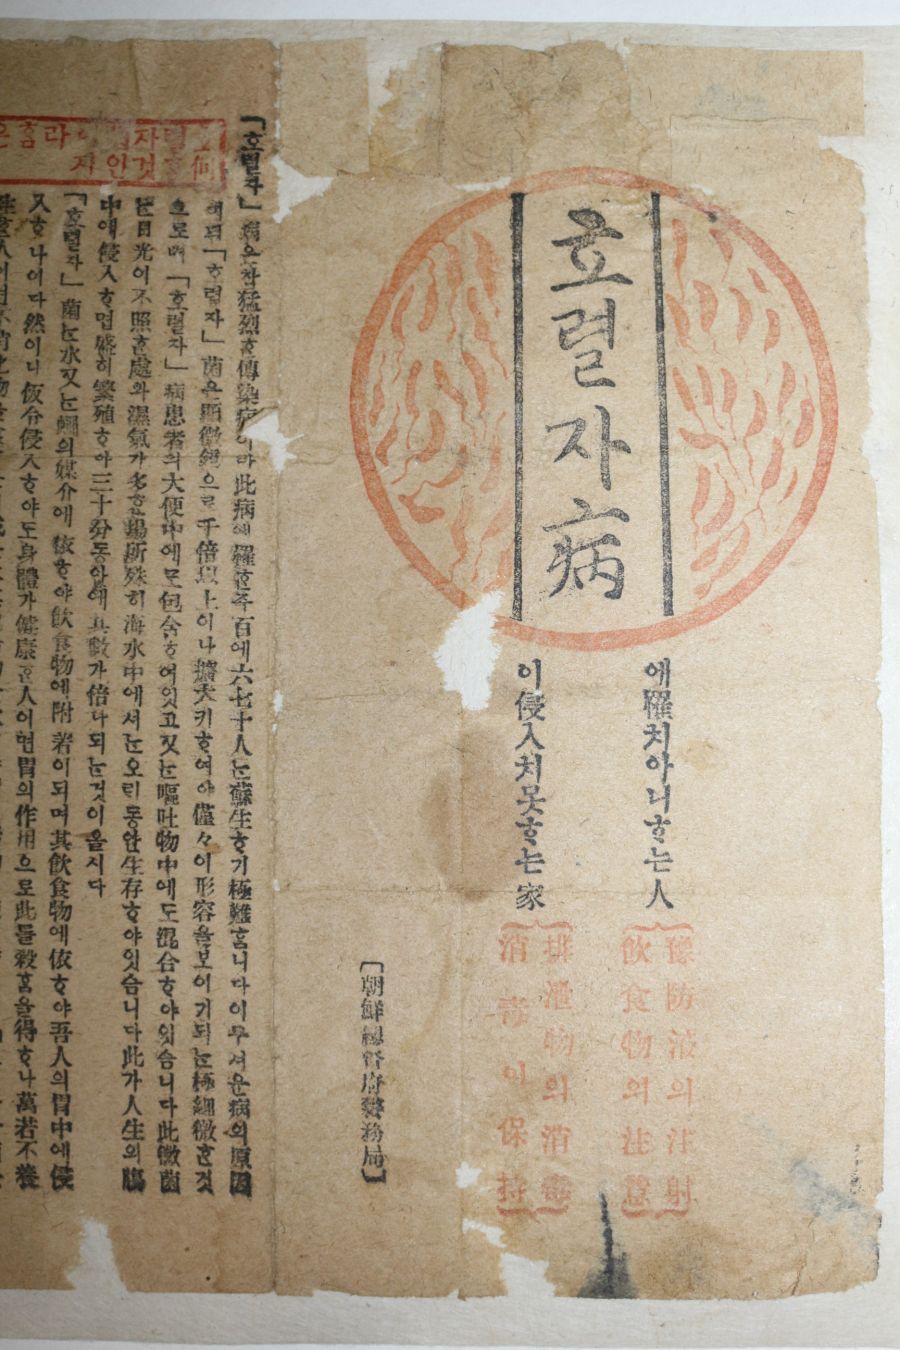 호렬자病
에罹치아니ᄒᆞᄂᆞᆫ人
豫防液의注射
飮食物의注意
이侵入치못ᄒᆞᄂᆞᆫ家
排泄物의消毒
消毒이保持
【朝鮮總督府警務局】
「호렬자」病은 猛烈ᄒᆞᆫ傳染病이라此病에罹ᄒᆞᆫ즉百에六七十人은蘇生ᄒᆞ기極難ᄒᆞᆷ니다이무셔운病의原因
여긔「호렬자」菌은顯微鏡으로千倍以上이나擴大키ᄒᆞ여야僅々이形容을보이기되ᄂᆞᆫ極細微ᄒᆞᆫ것
으로ᄆᆡ「호렬자」病患者의大便中에도包含ᄒᆞ여잇고又ᄂᆞᆫ嘔吐物中에도混合ᄒᆞ야잇슴니다此黴菌
은日光이不照ᄒᆞᆫ處와濕氣가多ᄒᆞᆫ場所殊히海水中에셔ᄂᆞᆫ오ᄅᆡ동안生存ᄒᆞ야잇슴니다此가人生의腸
中에侵入ᄒᆞ면盛히繁殖ᄒᆞ야三十分동안에其數가倍나되ᄂᆞᆫ것이올시다
「호렬자」菌은水又ᄂᆞᆫ蠅의媒介에依ᄒᆞ야飮食物에附着이되며其飮食物에依ᄒᆞ야吾人의胃中에侵
又ᄒᆞ나이다然이나假令侵入ᄒᆞ야도身體가健康ᄒᆞᆫ人이면胃의作用으로此를殺ᄒᆞᆷ을得ᄒᆞ나萬若不養